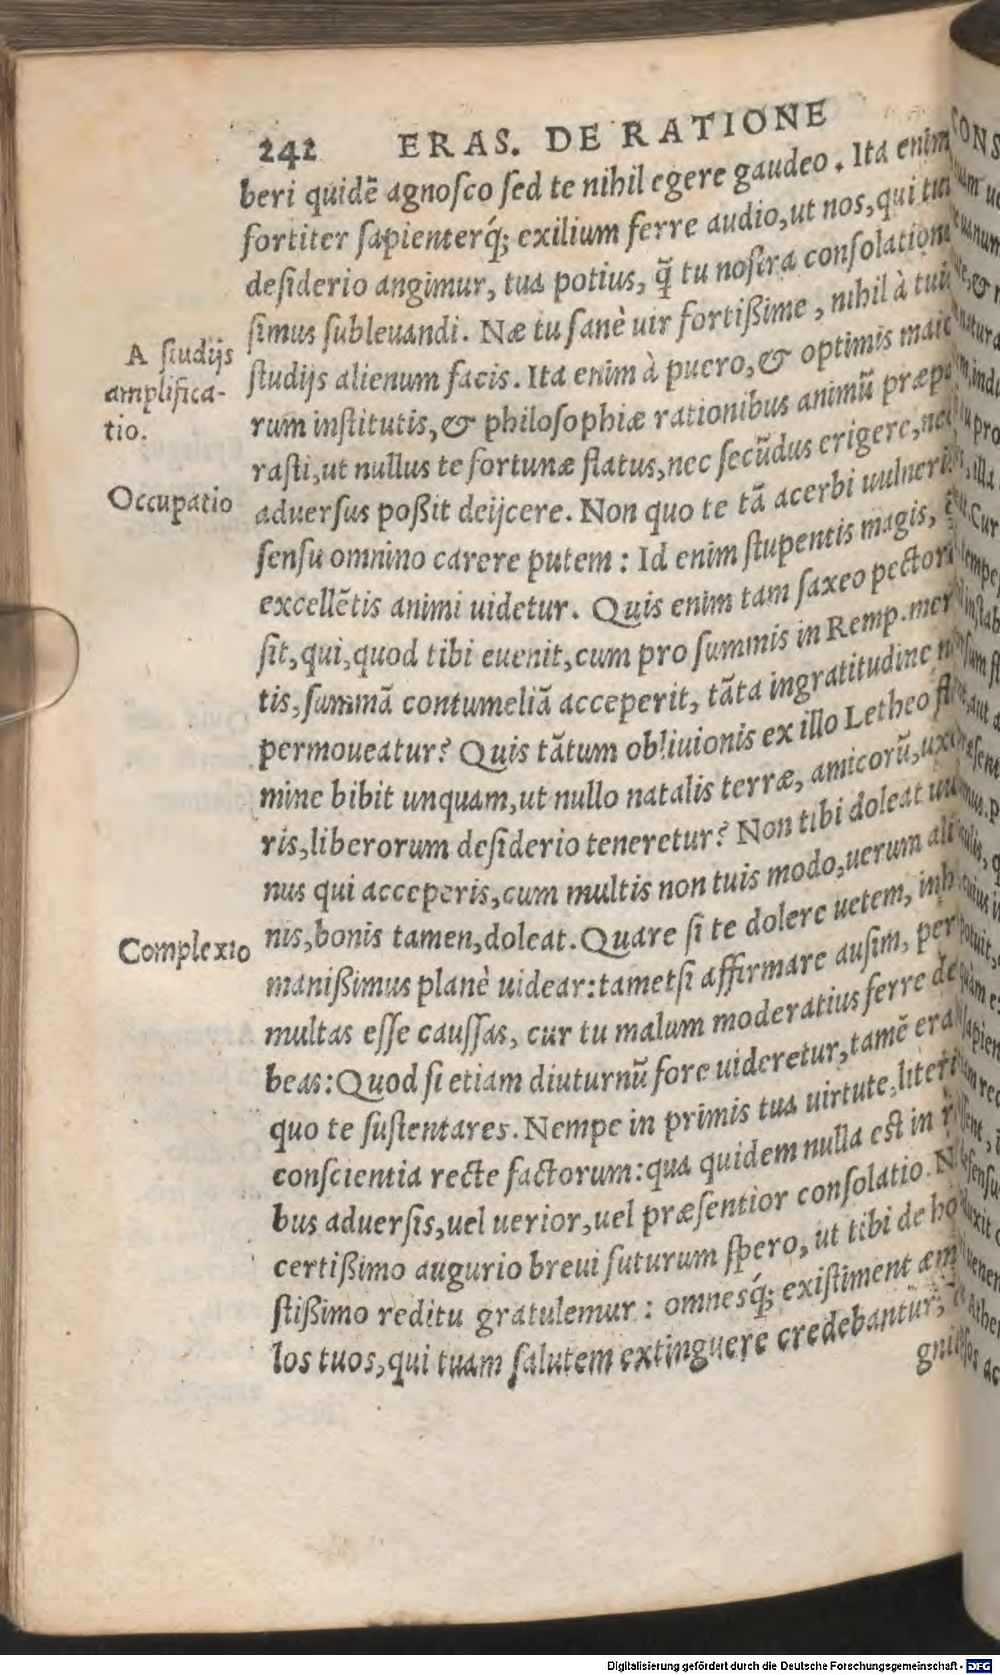 242 ERAS. DE RATIONE
beri quidẽ agnoſco ſed te nihil egere gaudeo. Ita enim
fortiter ſapienterq́; exilium ferre audio, ut nos, qui tui
deſiderio angimur, tua potius, q̃ tu noſtra conſolatione
ſimus ſubleuandi. Næ tu ſanè uir fortißime, nihil à tuis
A ſtudijs
amplifica-
tio.
ſtudijs alienum facis. Ita enim à puero, & optimis maio
rum inſtitutis, & philoſophiæ rationibus animũ præpa
raſti, ut nullus te fortunæ flatus, nec ſecũdus erigere, nec
Occupatio
aduerſus poßit deijcere. Non quo te tã acerbi uulneris
ſenſu omnino carere putem: Id enim ſtupentis magis, ꝗ̃
excellẽtis animi uidetur. Quis enim tam ſaxeo pectore
ſit, qui, quod tibi euenit, cum pro ſummis in Remp. meri
tis, ſummã contumeliã acceperit, tãta ingratitudine non
permoueatur? Quis tãtum obliuionis ex illo Letheo flu
mine bibit unquam, ut nullo natalis terræ, amicorũ, uxo
ris, liberorum deſiderio teneretur? Non tibi doleat uul
nus qui acceperis, cum multis non tuis modo, uerum alie
Complexio
nis, bonis tamen, doleat. Quare ſi te dolere uetem, inhu
manißimus planè uidear: tametſi affirmare auſim, per
multas eſſe cauſſas, cur tu malum moderatius ferre de
beas: Quod ſi etiam diuturnũ fore uideretur, tamẽ erat
quo te ſuſtentares. Nempe in primis tua uirtute, literis,
conſcientia recte factorum: qua quidem nulla eſt in re
bus aduerſis, uel uerior, uel præſentior conſolatio. Nos
certißimo augurio breui futurum ſpero, ut tibi de ho
ſtißimo reditu gratulemur: omnesq́; exiſtiment æmu
los tuos, qui tuam ſalutem extinguere credebantur,
Digitalisierung gefördert durch die Deutsche Forschungsgemeinschaft - DFG